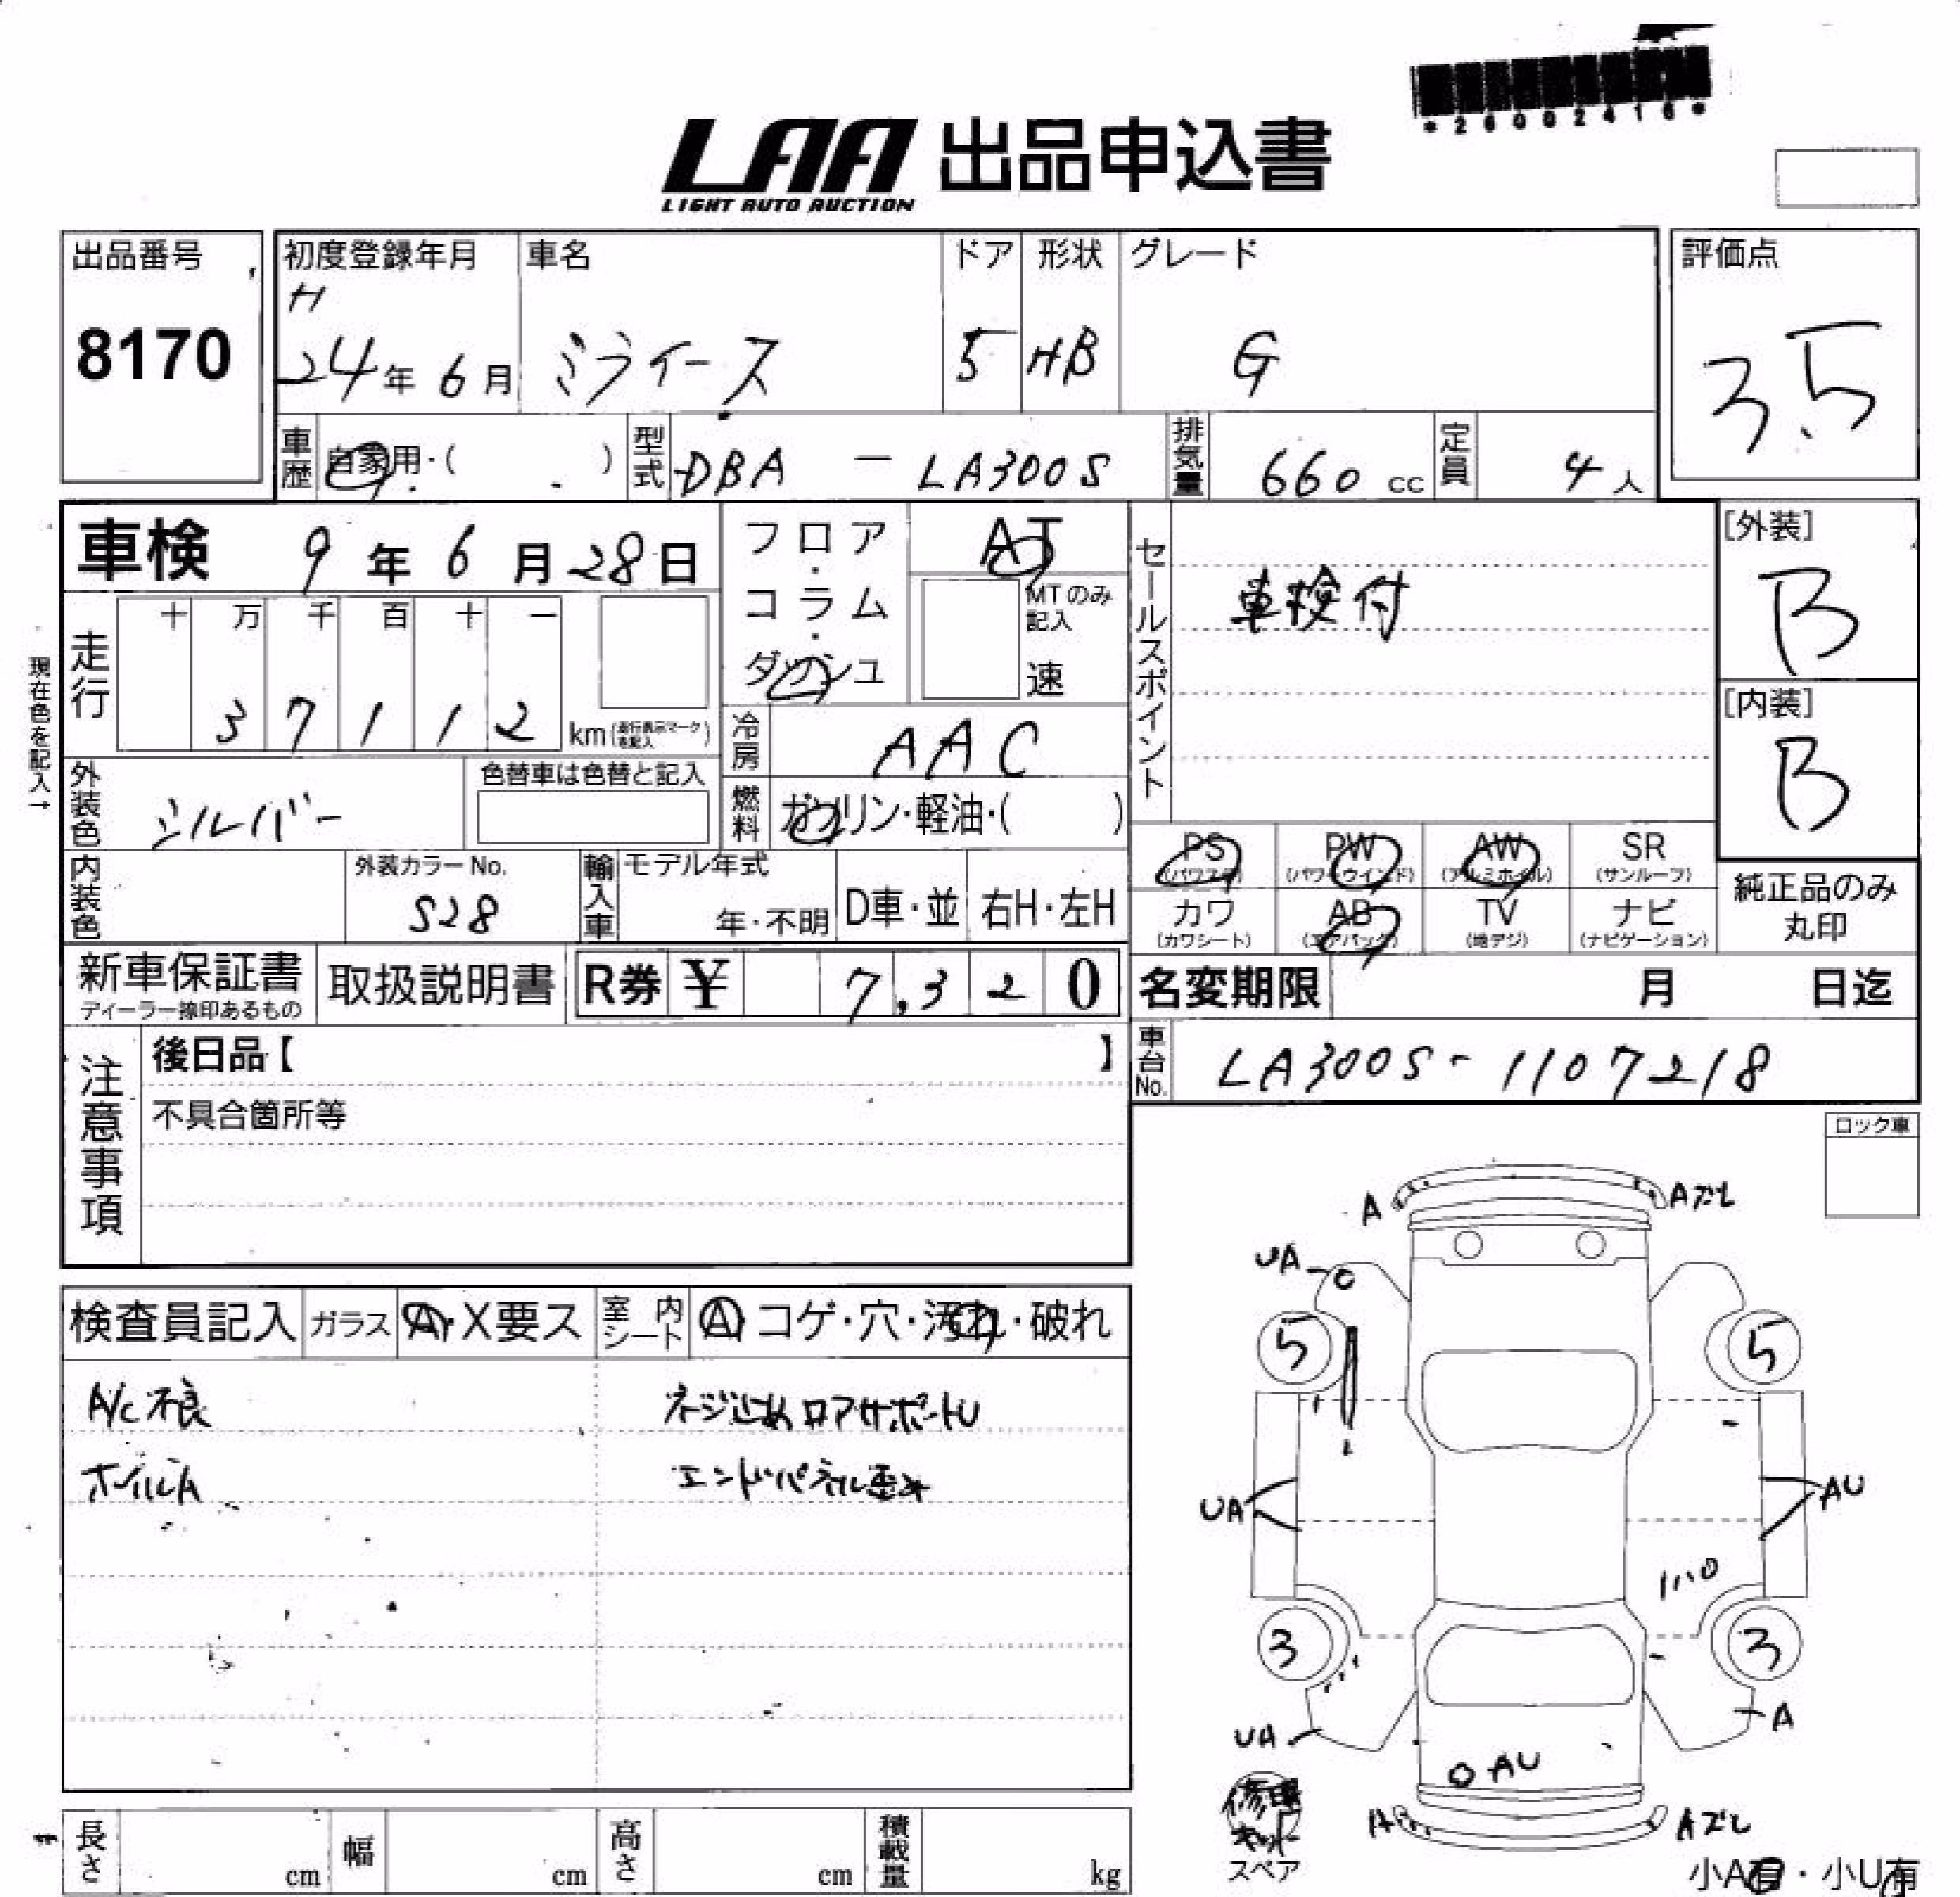 *26002416*
LAA 出品申込書
LIGHT AUTO AUCTION
出品番号
8170
初度登録年月
H
24年 6月
車名
ミライース
ドア
5
形状
HB
グレード
G
評価点
3.5
車歴
自家用・( )
型式
DBA - LA300S
排気量
660 cc
定員
4人
車検
9年 6月 28日
フロア・コラム・ダッシュ
AT
MTのみ記入
速
セールスポイント
車検付
[外装]
B
[内装]
B
現在色を記入→
走行
十 万 千 百 十 一
3 7 1 1 2
km(走行表示マークを記入)
冷房
AAC
外装色
シルバー
色替車は色替と記入
燃料
ガソリン・軽油・( )
内装色
外装カラーNo.
S28
輸入車
モデル年式
年・不明
D車・並
右H・左H
PS
(パワステ)
PW
(パワーウインド)
AW
(アルミホイル)
SR
(サンルーフ)
カワ
(カワシート)
AB
(エアバック)
TV
(地デジ)
ナビ
(ナビゲーション)
純正品のみ
丸印
新車保証書
ディーラー捺印あるもの
取扱説明書
R券 ¥ 7,320
名変期限 月 日迄
注意事項
後日品【 】
不具合箇所等
車台No.
LA300S-1107218
ロック車
検査員記入
ガラス
A・X要ス
室内シート
A・コゲ・穴・汚れ・破れ
A/C不良
ホイルA
ネジ止めロアサポートU
エンドパネル歪み
A
Aズレ
UA
5
5
UA
AU
3
3
UA
A
AU
A
Aズレ
修理
キット
スペア
小A有・小U有
長さ cm
幅 cm
高さ cm
積載量 kg